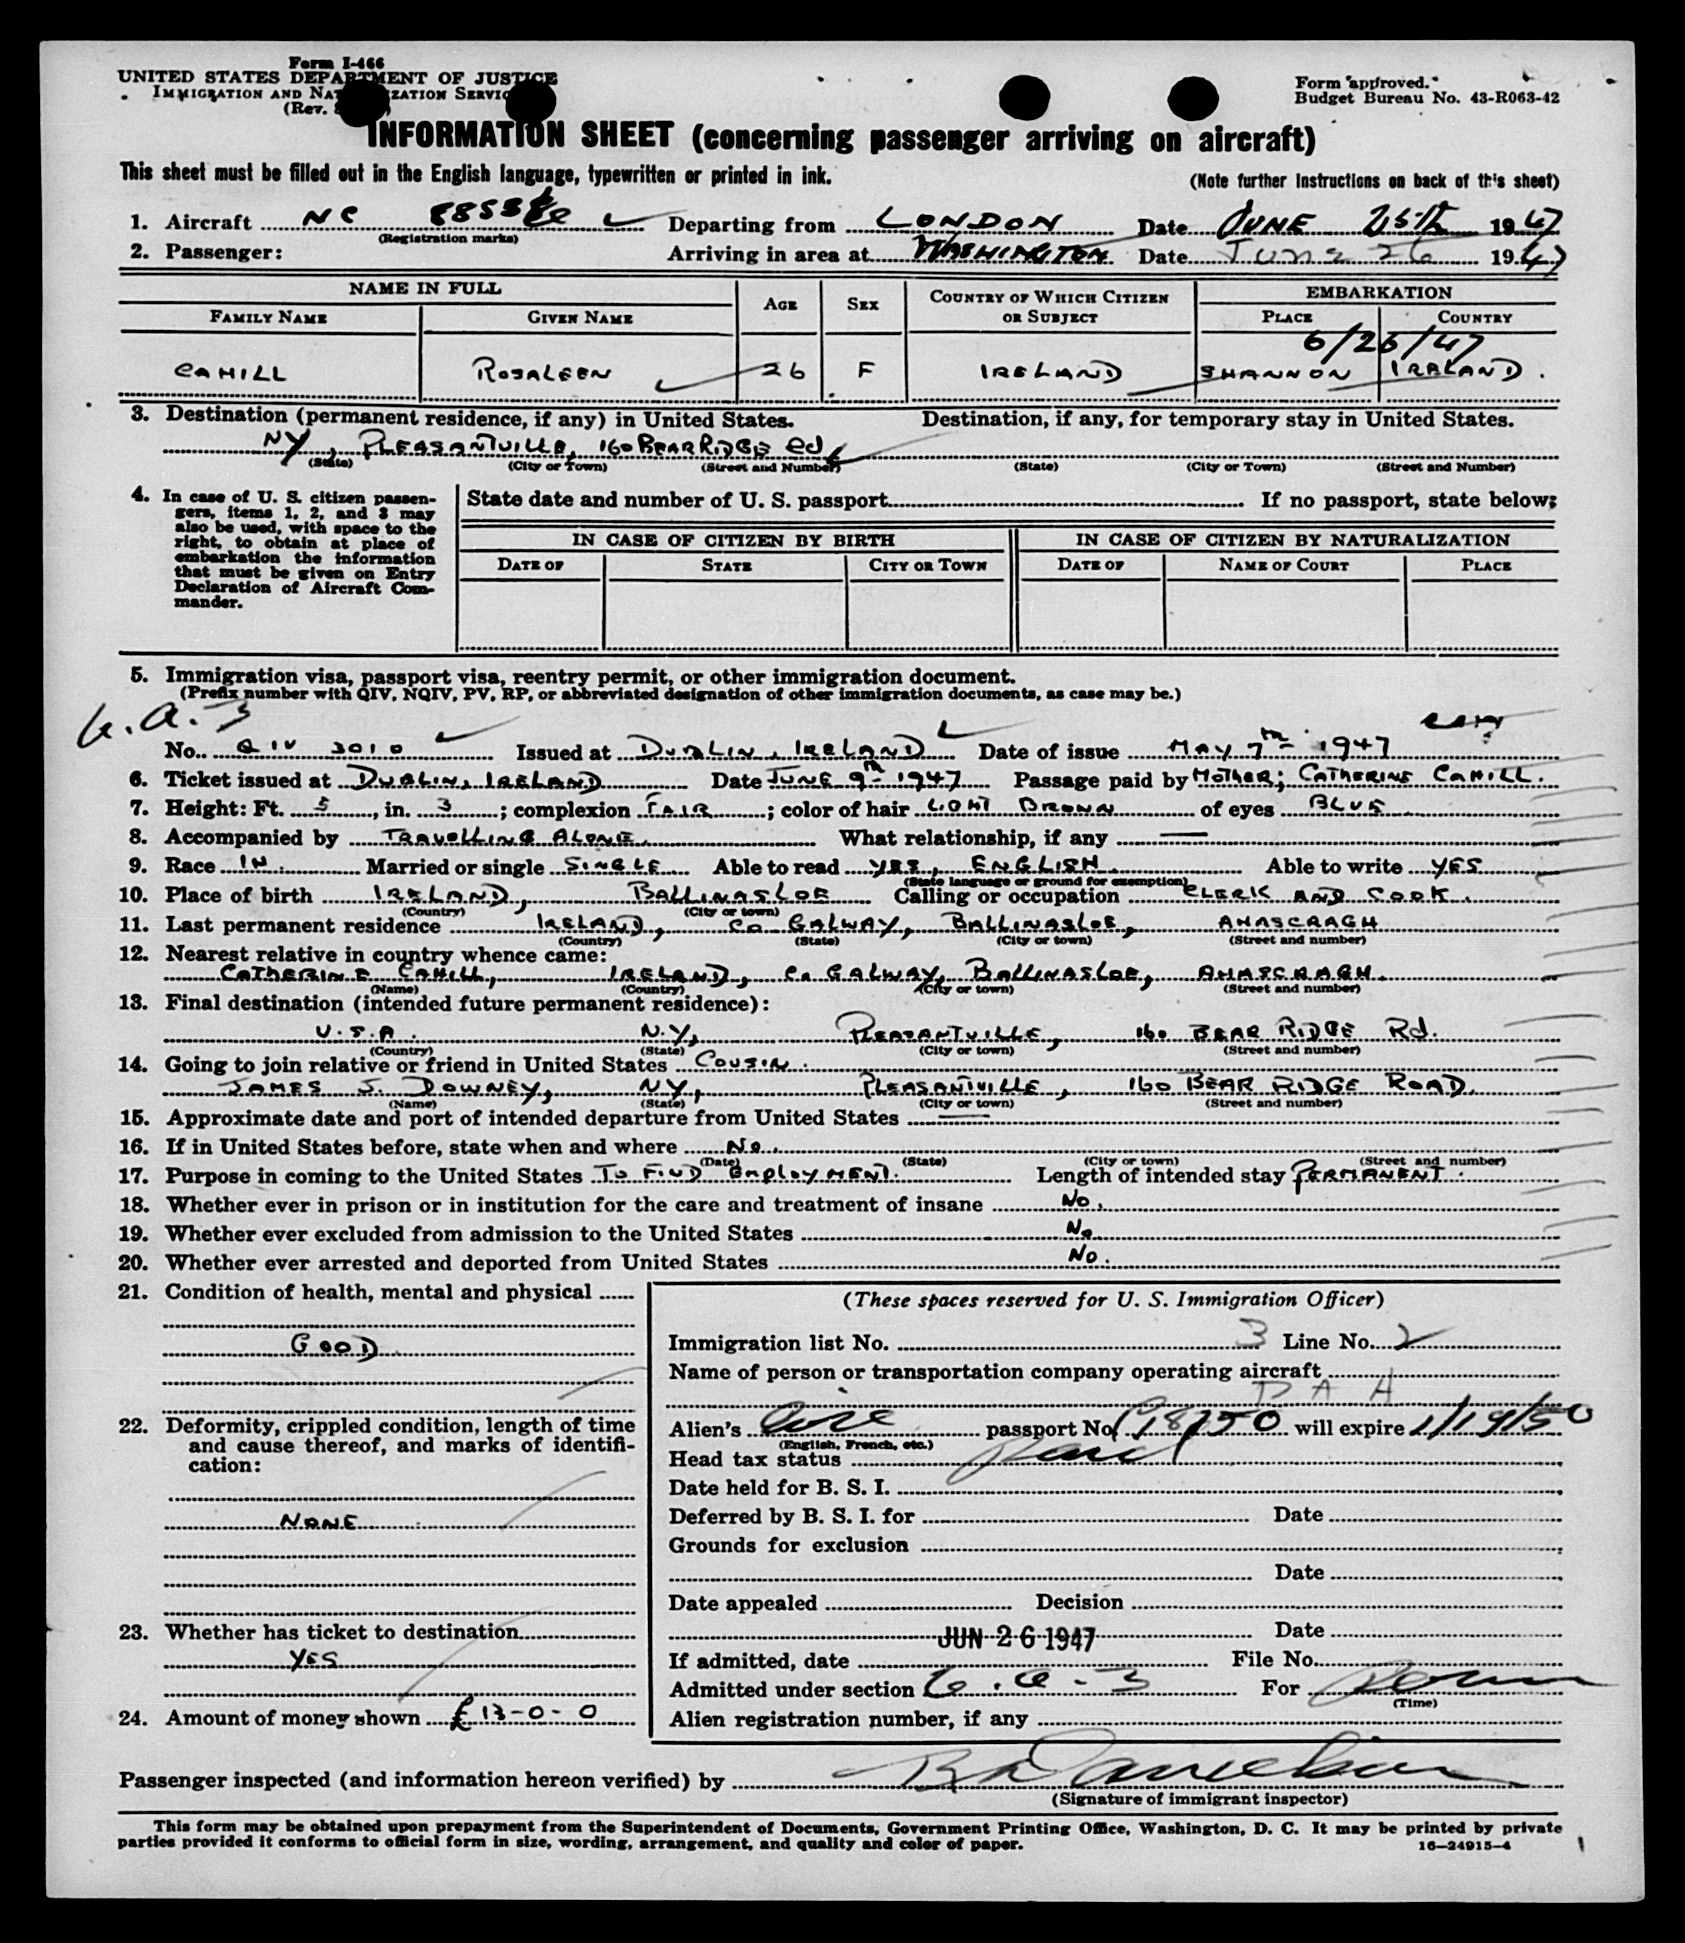 Form I-466
UNITED STATES DEPARTMENT OF JUSTICE
IMMIGRATION AND NATURALIZATION SERVICE
(Rev.
Form approved.
Budget Bureau No. 43-R063-42
INFORMATION SHEET (concerning passenger arriving on aircraft)
This sheet must be filled out in the English language, typewritten or printed in ink.
(Note further instructions on back of this sheet)
1. Aircraft NC Departing from LONDON Date JUNE 25th 1947
(Registration marks)
2. Passenger: Arriving in area at WASHINGTON Date June 26 1947
NAME IN FULL AGE SEX COUNTRY OF WHICH CITIZEN OR SUBJECT EMBARKATION
FAMILY NAME GIVEN NAME PLACE COUNTRY
6/26/47
CAHILL ROSALEEN 26 F IRELAND SHANNON IRELAND.
3. Destination (permanent residence, if any) in United States. Destination, if any, for temporary stay in United States.
NY, PLEASANTVILLE, 160 BEAR RIDGE Rd,
(State) (City or Town) (Street and Number) (State) (City or Town) (Street and Number)
4. In case of U. S. citizen passengers, items 1, 2, and 3 may also be used, with space to the right, to obtain at place of embarkation the information that must be given on Entry Declaration of Aircraft Commander.
State date and number of U. S. passport If no passport, state below:
IN CASE OF CITIZEN BY BIRTH IN CASE OF CITIZEN BY NATURALIZATION
DATE OF STATE CITY OR TOWN DATE OF NAME OF COURT PLACE
5. Immigration visa, passport visa, reentry permit, or other immigration document.
(Prefix number with QIV, NQIV, PV, RP, or abbreviated designation of other immigration documents, as case may be.)
6.a.3
No. QIV 3010 Issued at DUBLIN, IRELAND Date of issue MAY 7th 1947
6. Ticket issued at DUBLIN, IRELAND Date JUNE 9th 1947 Passage paid by MOTHER; CATHERINE CAHILL.
7. Height: Ft. 5, in. 3; complexion FAIR; color of hair LIGHT BROWN of eyes BLUE
8. Accompanied by TRAVELLING ALONE. What relationship, if any
9. Race IR. Married or single SINGLE Able to read YES, ENGLISH Able to write YES
(State language or ground for exemption)
10. Place of birth IRELAND, BALLINASLOE Calling or occupation CLERK AND COOK.
(Country) (City or town)
11. Last permanent residence IRELAND, Co GALWAY, BALLINASLOE, AHASCRAGH
(Country) (State) (City or town) (Street and number)
12. Nearest relative in country whence came:
CATHERINE CAHILL, IRELAND, Co GALWAY, BALLINASLOE, AHASCRAGH.
(Name) (Country) (City or town) (Street and number)
13. Final destination (intended future permanent residence):
U.S.A. N.Y, PLEASANTVILLE, 160 BEAR RIDGE Rd.
(Country) (State) (City or town) (Street and number)
14. Going to join relative or friend in United States COUSIN.
JAMES J. DOWNEY, NY, PLEASANTVILLE, 160 BEAR RIDGE ROAD.
(Name) (State) (City or town) (Street and number)
15. Approximate date and port of intended departure from United States
16. If in United States before, state when and where No.
(Date) (State) (City or town) (Street and number)
17. Purpose in coming to the United States TO FIND EMPLOYMENT. Length of intended stay PERMANENT.
18. Whether ever in prison or in institution for the care and treatment of insane No.
19. Whether ever excluded from admission to the United States No
20. Whether ever arrested and deported from United States No.
21. Condition of health, mental and physical
GOOD
22. Deformity, crippled condition, length of time and cause thereof, and marks of identification:
NONE
23. Whether has ticket to destination
YES
24. Amount of money shown £13-0-0
(These spaces reserved for U. S. Immigration Officer)
Immigration list No. 3 Line No. 2
Name of person or transportation company operating aircraft
PAA
Alien's Eire passport No. will expire 1/19/50
(English, French, etc.)
Head tax status Paid
Date held for B. S. I.
Deferred by B. S. I. for Date
Grounds for exclusion
Date
Date appealed Decision
Date
JUN 26 1947
If admitted, date File No.
Admitted under section 6.a-3 For Perm
(Time)
Alien registration number, if any
Passenger inspected (and information hereon verified) by
(Signature of immigrant inspector)
This form may be obtained upon prepayment from the Superintendent of Documents, Government Printing Office, Washington, D. C. It may be printed by private
parties provided it conforms to official form in size, wording, arrangement, and quality and color of paper.
16—24915-4